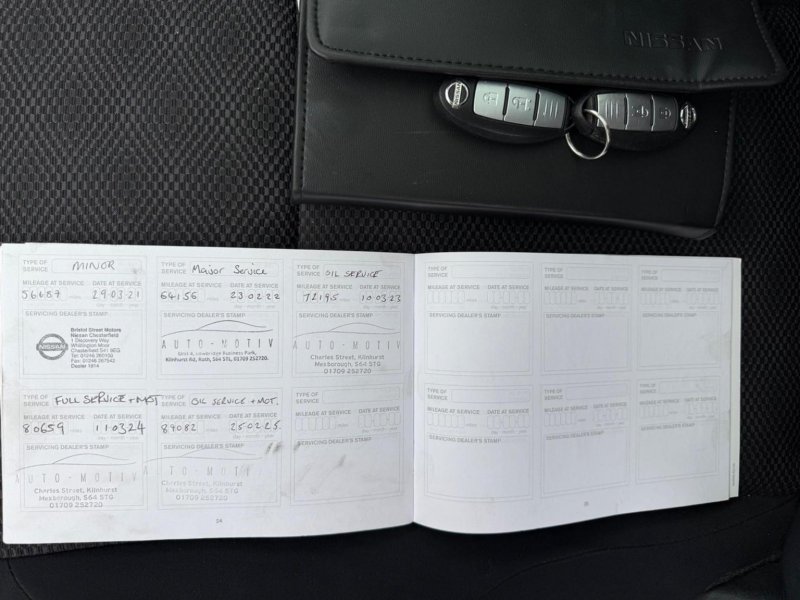 NISSAN
TYPE OF SERVICE MINOR
MILEAGE AT SERVICE DATE AT SERVICE
56657 miles 29 03 21
day month year
SERVICING DEALER'S STAMP
NISSAN
Bristol Street Motors
Nissan Chesterfield
1 Discovery Way
Whittington Moor
Chesterfield S41 9EG
Tel: 01246 260100
Fax: 01246 267542
Dealer 1914
TYPE OF SERVICE Major Service
MILEAGE AT SERVICE DATE AT SERVICE
64156 miles 23 02 22
day month year
SERVICING DEALER'S STAMP
AUTO-MOTIV
Unit 4, Lowbridge Business Park,
Kilnhurst Rd, Roth, S64 5TL, 01709 252720.
TYPE OF SERVICE OIL SERVICE
MILEAGE AT SERVICE DATE AT SERVICE
72195 miles 10 03 23
day month year
SERVICING DEALER'S STAMP
AUTO-MOTIV
Charles Street, Kilnhurst
Mexborough, S64 5TG
01709 252720
TYPE OF SERVICE FULL SERVICE + MOT
MILEAGE AT SERVICE DATE AT SERVICE
80659 miles 11 03 24
day month year
SERVICING DEALER'S STAMP
AUTO-MOTIV
Charles Street, Kilnhurst
Mexborough, S64 5TG
01709 252720
TYPE OF SERVICE OIL SERVICE + MOT.
MILEAGE AT SERVICE DATE AT SERVICE
89082 miles 25 02 25
day month year
SERVICING DEALER'S STAMP
AUTO-MOTIV
Charles Street, Kilnhurst
Mexborough, S64 5TG
01709 252720
TYPE OF SERVICE
MILEAGE AT SERVICE DATE AT SERVICE
SERVICING DEALER'S STAMP
54
TYPE OF SERVICE
MILEAGE AT SERVICE DATE AT SERVICE
SERVICING DEALER'S STAMP
TYPE OF SERVICE
MILEAGE AT SERVICE DATE AT SERVICE
SERVICING DEALER'S STAMP
TYPE OF SERVICE
MILEAGE AT SERVICE DATE AT SERVICE
SERVICING DEALER'S STAMP
TYPE OF SERVICE
MILEAGE AT SERVICE DATE AT SERVICE
SERVICING DEALER'S STAMP
TYPE OF SERVICE
MILEAGE AT SERVICE DATE AT SERVICE
SERVICING DEALER'S STAMP
TYPE OF SERVICE
MILEAGE AT SERVICE DATE AT SERVICE
SERVICING DEALER'S STAMP